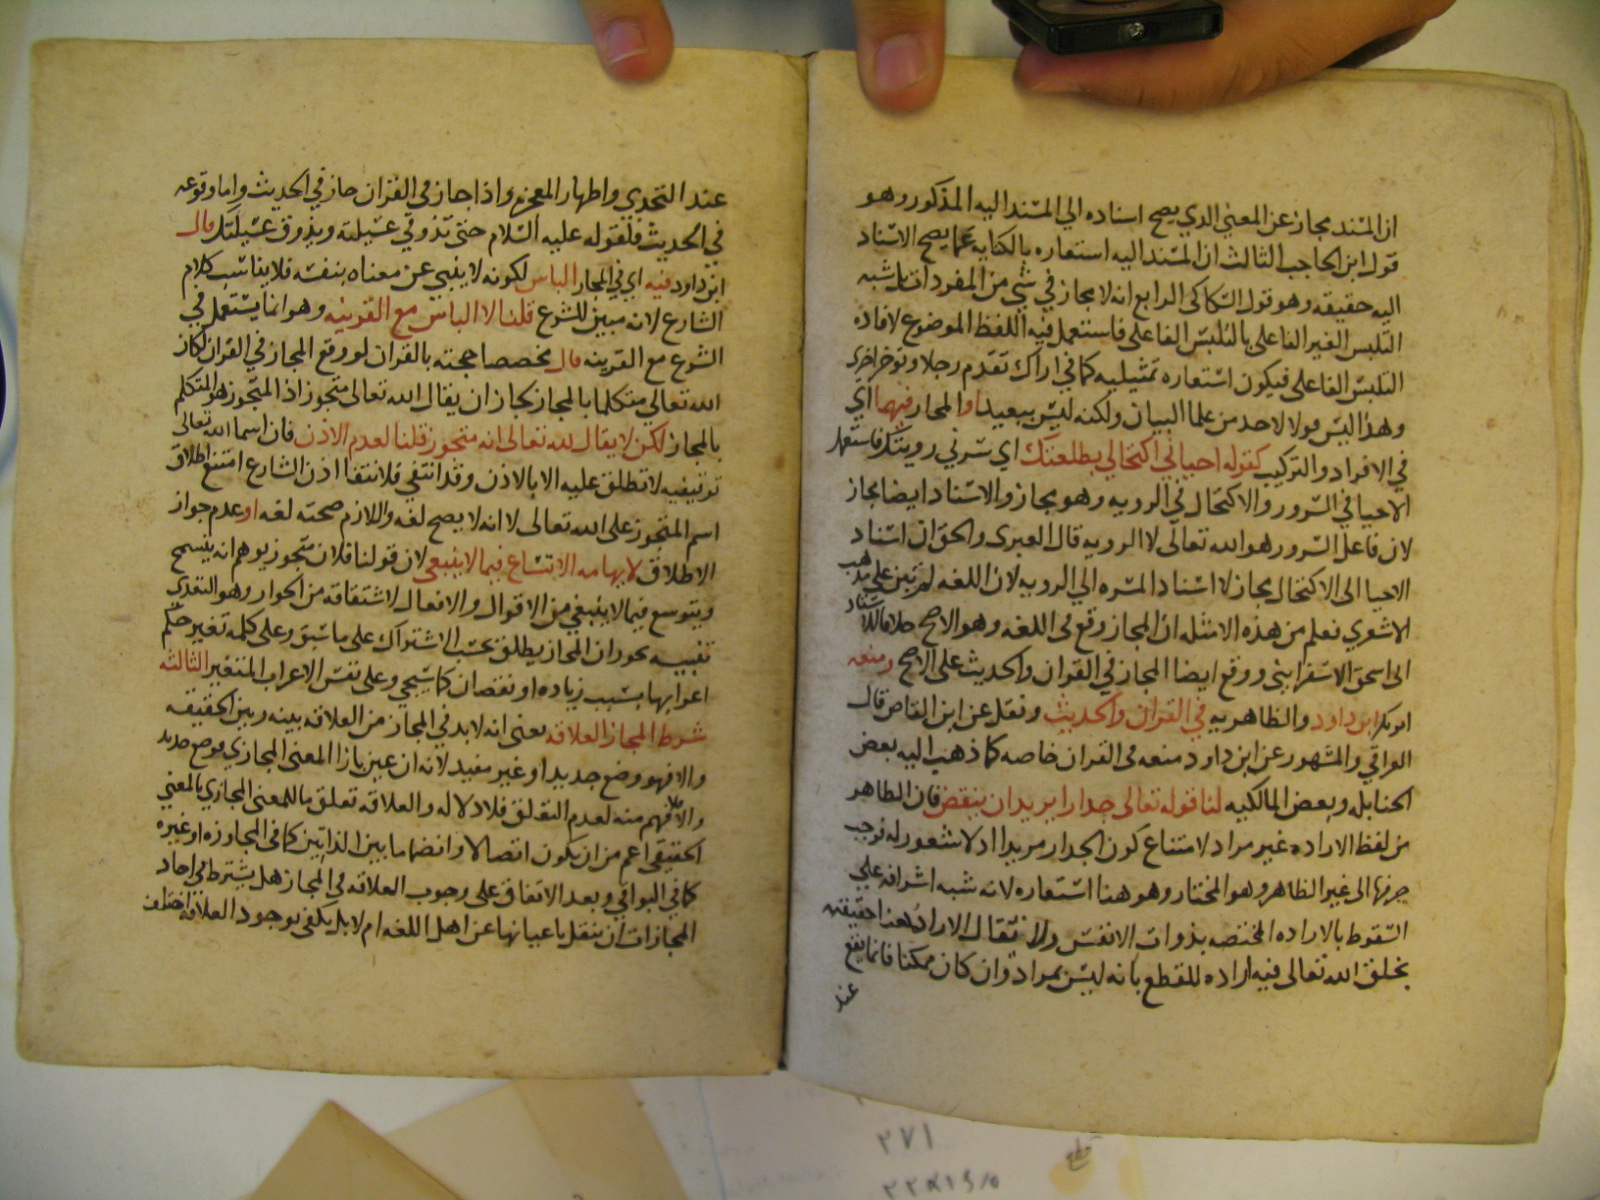 ان المسند مجاز عن المعنى الذي يصح اسناده الي المسند اليه المذكور وهو
قول ابن الحاجب الثالث ان المسند اليه استعاره بالكنايه عما يصح الاسناد
اليه حقيقه وهو قول السكاكى الرابع انه لا مجاز في شي من المفردات بل شبه
التلبس الغير الفاعلى بالتلبس الفاعلى فاستعمل فيه اللفظ الموضوع لافاده
التلبس الفاعلى فيكون استعاره تمثيليه كما في اراك تقدم رجلا وتوخر اخرى
وهذا ليس قولا لاحد من علما البيان ولكنه ليس ببعيد او المجاز فيهما اي
في الافراد والتركيب كقوله احياني اكتحالي بطلعتك اي سرني رويتك فاستعمل
الاحيا في السرور والاكتحال في الرويه وهو مجاز والاسناد ايضا مجاز
لان فاعل السرور هو الله تعالى لا الرويه قال العبرى والحق ان اسناد
الاحيا الى الاكتحال مجاز لا اسناد المسره الي الرويه لان اللغه لم تبن على مذهب
الاشعري نعلم من هذه الامثله ان المجاز وقع فى اللغه وهو الاصح خلافا للاستاد
ابى اسحق الاسفراينى ووقع ايضا المجاز في القران والحديث على الاصح ومنعه
ابو بكر ابن داود والظاهريه في القران والحديث ونقل عن ابن القاص قال
العراقي والمشهور عن ابن داود منعه فى القران خاصه كما ذهب اليه بعض
الحنابله وبعض المالكيه لنا قوله تعالى جدارا يريد ان ينقض فان الظاهر
من لفظ الاراده غير مراد لامتناع كون الجدار مريدا اذ لا شعور له فوجب
صرفها الى غير الظاهر وهو المختار وهو هنا استعاره لانه شبه اشرافه علي
السقوط بالاراده المختصه بذوات الانفس ولا يقال الاراده هنا حقيقه
بخلق الله تعالى فيه اراده للقطع بانه ليس بمراد وان كان ممكنا فانما يقع
عند
عند التحدي واظهار المعجزه واذا جاز فى القران جاز في الحديث واما وقوعه
في الحديث فلقوله عليه السلام حتى تذوقي عسيلته ويذوق عسيلتك قال
ابن داود فيه اي في المجاز الباس لكونه لا ينبي عن معناه بنفسه فلا يناسب كلام
الشارع لانه مبين للشرع قلنا لا الباس مع القرينه وهو انما يستعمل في
الشرع مع القرينه قال مخصصا حجته بالقران لو وقع المجاز في القران لكان
الله تعالي متكلما بالمجاز فجاز ان يقال الله تعالى متجوز اذ المتجوز هو المتكلم
بالمجاز لكن لا يقال لله تعالى انه متجوز قلنا لعدم الاذن فان اسما الله تعالى
توقيفيه لا تطلق عليه الا بالاذن وقد انتفي فلانتفا اذن الشارع امتنع اطلاق
اسم المتجوز على الله تعالى لا انه لا يصح لغه واللازم صحته لغه او عدم جواز
الاطلاق لايهامه الاتساع فيما لا ينبغي لان قولنا فلان متجوز يوهم انه يتسمح
ويتوسع فيما لا ينبغي من الاقوال والافعال لاشتقاقه من الجواز وهو التعدي
تنبيه يجوز ان المجاز يطلق بحسب الاشتراك على ما سبق وعلى كلمه تغير حكم
اعرابها بسبب زياده او نقصان كما سيجي وعلى نفس الاعراب المتغير الثالثه
شرط المجاز العلاقه يعنى انه لا بد في المجاز من العلاقه بينه وبين الحقيقه
والا فهو وضع جديد او غير مفيد لانه ان عين بازا المعنى المجازي فوضع جديد
والا فلا فهم منه لعدم التعلق فلا دلاله والعلاقه تعلق ما للمعنى المجازي بالمعني
الحقيقي اعم من ان يكون اتصالا وانضماما بين الذاتين كما فى المجاوره او غيره
كما في البواقي وبعد الاتفاق على وجوب العلاقه في المجاز هل يشترط في احاد
المجازات ان ينقل باعيانها عن اهل اللغه ام لا بل يكفى بوجود العلاقه اختلف
٢٧١